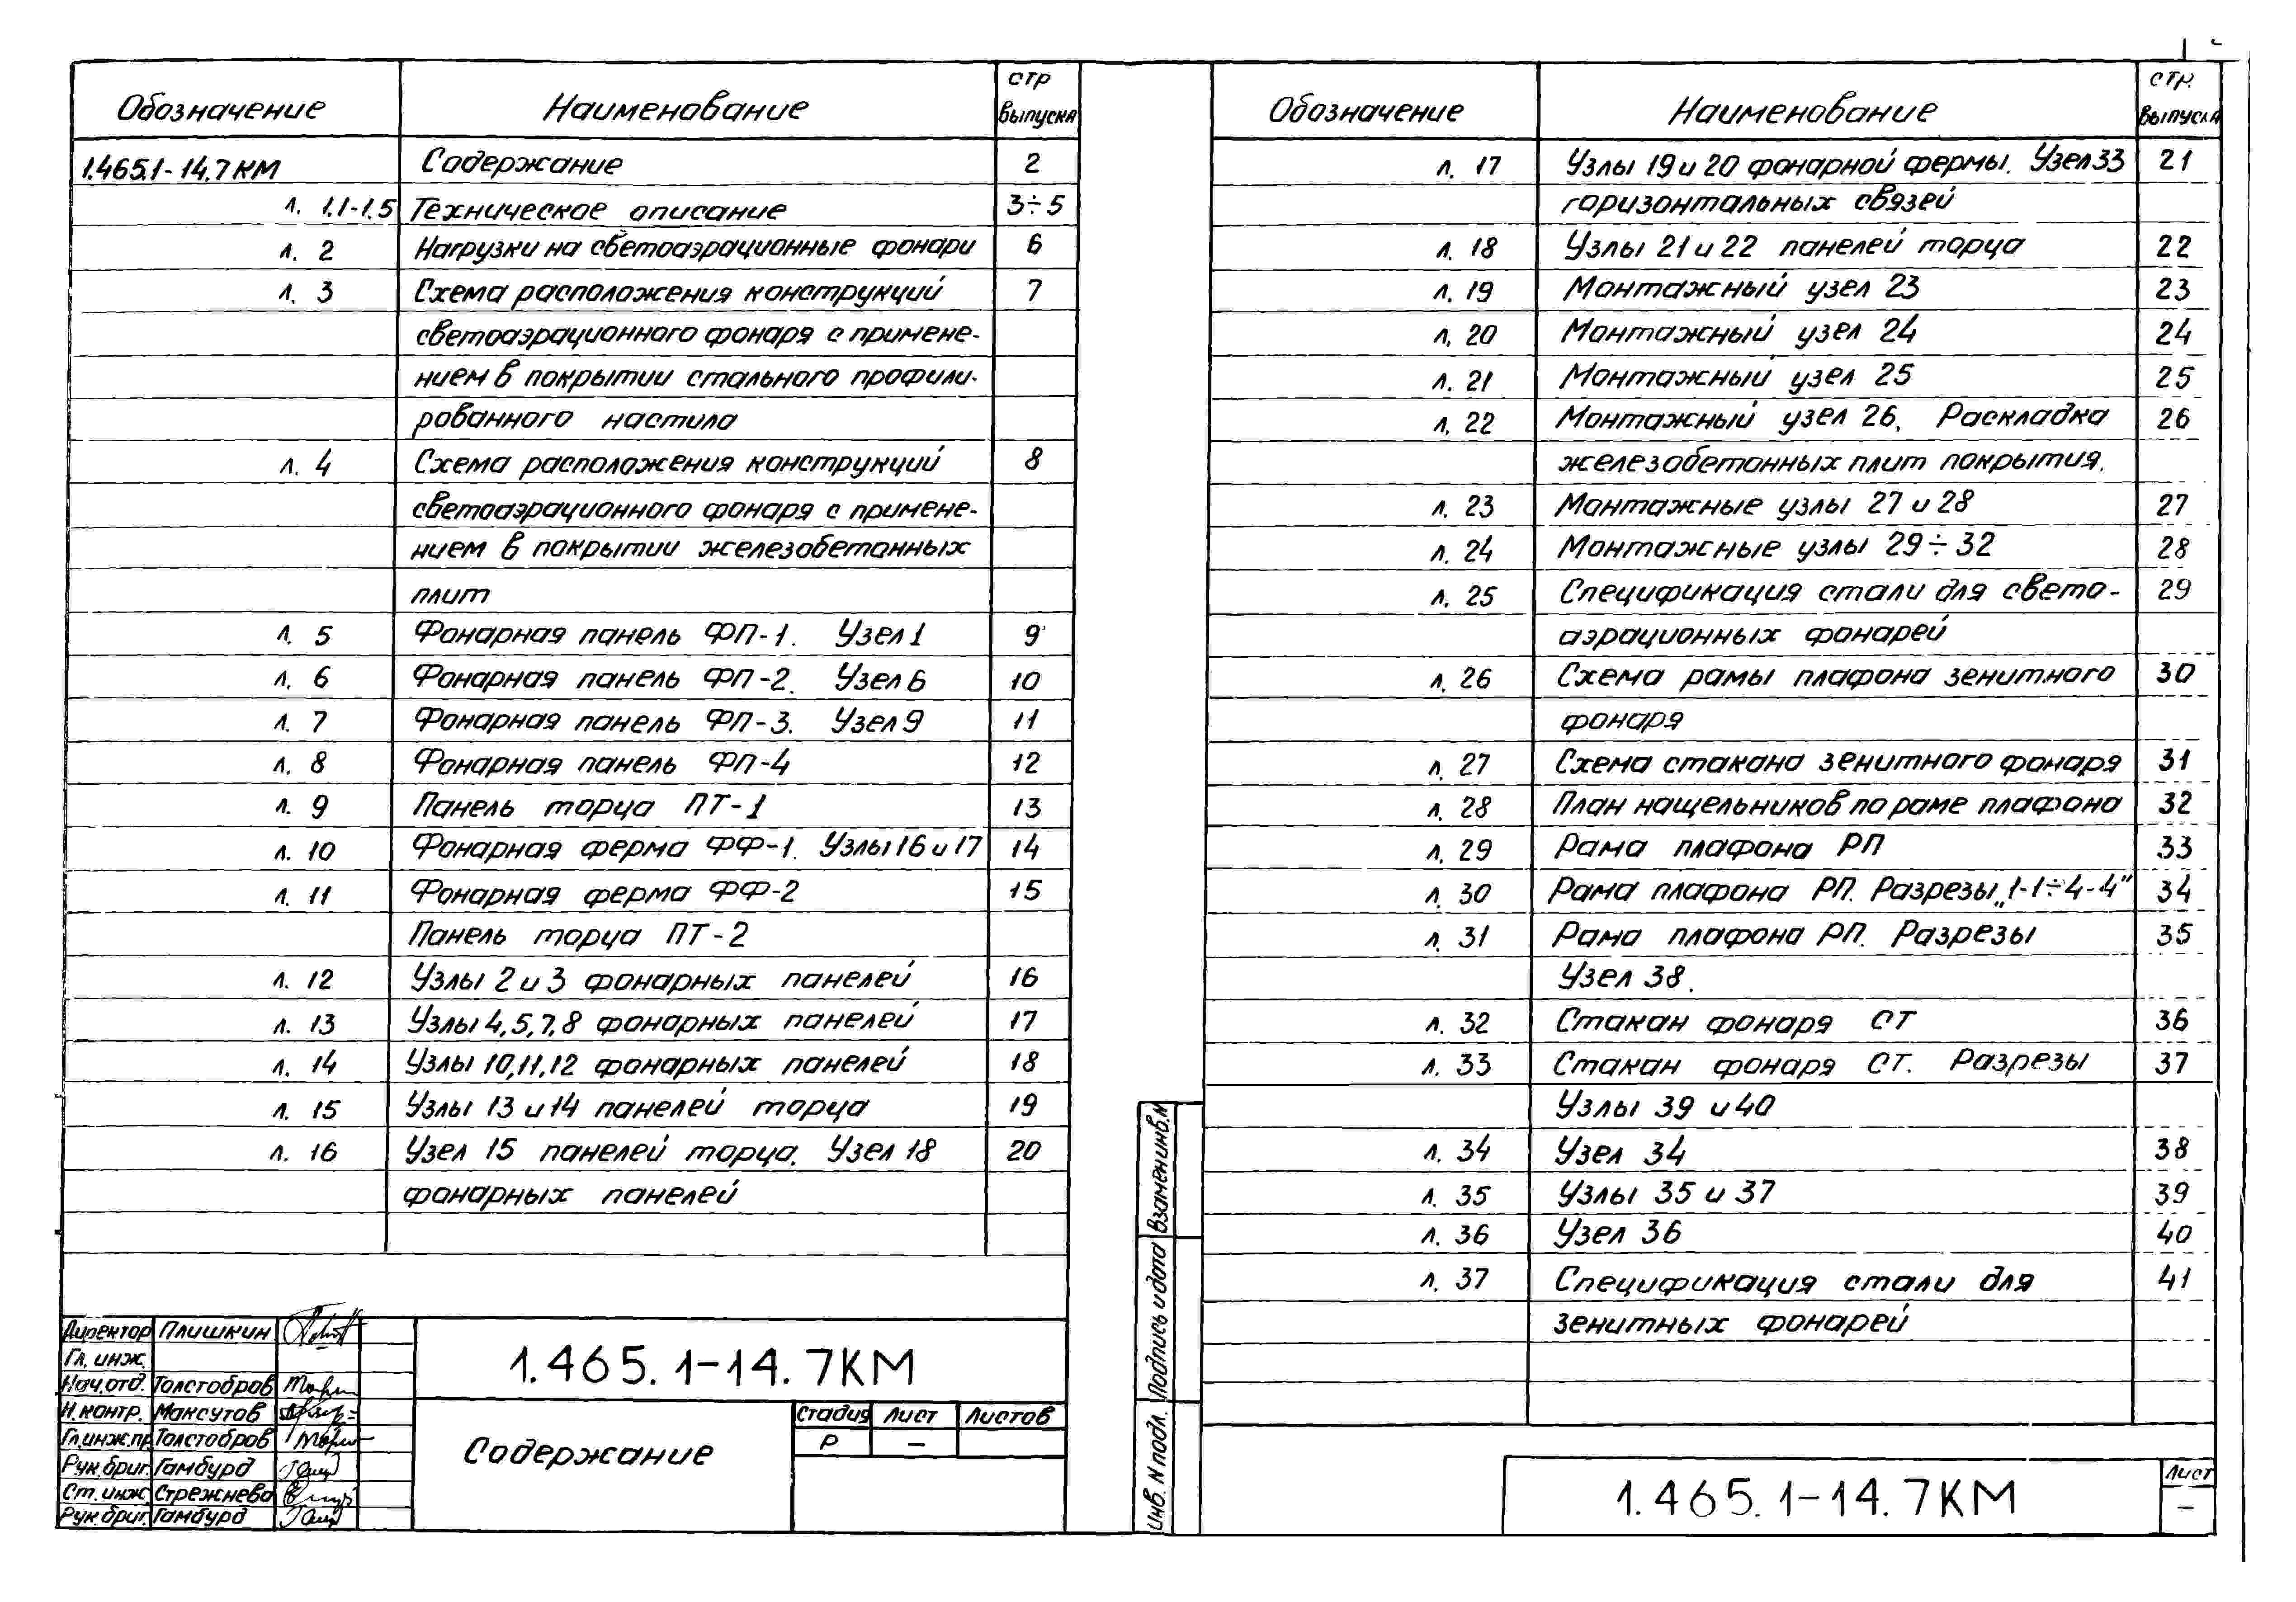 Обозначение Наименование стр выпуска
1.465.1-14.7КМ Содержание 2
л. 1.1-1.5 Техническое описание 3÷5
л. 2 Нагрузки на светоаэрационные фонари 6
л. 3 Схема расположения конструкций 7
светоаэрационного фонаря с примене-
нием в покрытии стального профили-
рованного настила
л. 4 Схема расположения конструкций 8
светоаэрационного фонаря с примене-
нием в покрытии железобетонных
плит
л. 5 Фонарная панель ФП-1. Узел 1 9
л. 6 Фонарная панель ФП-2. Узел 6 10
л. 7 Фонарная панель ФП-3. Узел 9 11
л. 8 Фонарная панель ФП-4 12
л. 9 Панель торца ПТ-1 13
л. 10 Фонарная ферма ФФ-1. Узлы 16 и 17 14
л. 11 Фонарная ферма ФФ-2 15
Панель торца ПТ-2
л. 12 Узлы 2 и 3 фонарных панелей 16
л. 13 Узлы 4,5,7,8 фонарных панелей 17
л. 14 Узлы 10,11,12 фонарных панелей 18
л. 15 Узлы 13 и 14 панелей торца 19
л. 16 Узел 15 панелей торца. Узел 18 20
фонарных панелей
Директор Плишкин
Гл. инж.
Нач. отд. Толстобров
Н. контр. Максутов
Гл. инж. пр. Толстобров
Рук. бриг. Гамбурд
Ст. инж. Стрежнева
Рук. бриг. Гамбурд
1.465.1-14.7КМ
Содержание
Стадия Лист Листов
Р —
Обозначение Наименование стр. выпуска
л. 17 Узлы 19 и 20 фонарной фермы. Узел 33 21
горизонтальных связей
л. 18 Узлы 21 и 22 панелей торца 22
л. 19 Монтажный узел 23 23
л. 20 Монтажный узел 24 24
л. 21 Монтажный узел 25 25
л. 22 Монтажный узел 26. Раскладка 26
железобетонных плит покрытия.
л. 23 Монтажные узлы 27 и 28 27
л. 24 Монтажные узлы 29÷32 28
л. 25 Спецификация стали для свето- 29
аэрационных фонарей
л. 26 Схема рамы плафона зенитного 30
фонаря
л. 27 Схема стакана зенитного фонаря 31
л. 28 План нащельников по раме плафона 32
л. 29 Рама плафона РП 33
л. 30 Рама плафона РП. Разрезы „1-1÷4-4" 34
л. 31 Рама плафона РП. Разрезы 35
Узел 38.
л. 32 Стакан фонаря СТ 36
л. 33 Стакан фонаря СТ. Разрезы 37
Узлы 39 и 40
л. 34 Узел 34 38
л. 35 Узлы 35 и 37 39
л. 36 Узел 36 40
л. 37 Спецификация стали для 41
зенитных фонарей
Взамен инв. N
Подпись и дата
Инв. N подл.
1.465.1-14.7КМ
Лист
—